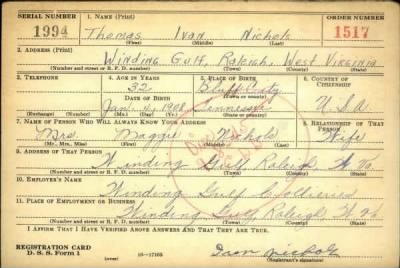 SERIAL NUMBER 1. NAME (Print) ORDER NUMBER
1994 Thomas Ivan Nichols 1517
(First) (Middle) (Last)
2. ADDRESS (Print)
Winding Gulf, Raleigh, West Virginia
(Number and street or R. F. D. number) (Town) (County) (State)
3. TELEPHONE 4. AGE IN YEARS 5. PLACE OF BIRTH 6. COUNTRY OF CITIZENSHIP
32 Bluff City
DATE OF BIRTH (Town or county)
Jan. 6, 1908 Tennessee U.S.A
(Exchange) (Number) (Mo.) (Day) (Yr.) (State or country)
7. NAME OF PERSON WHO WILL ALWAYS KNOW YOUR ADDRESS 8. RELATIONSHIP OF THAT PERSON
Mrs. Maggie Nichols Wife
(Mr., Mrs., Miss) (First) (Middle) (Last)
9. ADDRESS OF THAT PERSON
Winding Gulf Raleigh W. Va.
(Number and street or R. F. D. number) (Town) (County) (State)
10. EMPLOYER'S NAME
Winding Gulf Collieries
11. PLACE OF EMPLOYMENT OR BUSINESS
Winding Gulf Raleigh W. Va
(Number and street or R. F. D. number) (Town) (County) (State)
I AFFIRM THAT I HAVE VERIFIED ABOVE ANSWERS AND THAT THEY ARE TRUE.
REGISTRATION CARD
D. S. S. Form 1 16—17105 Nichols
(Registrant's signature)